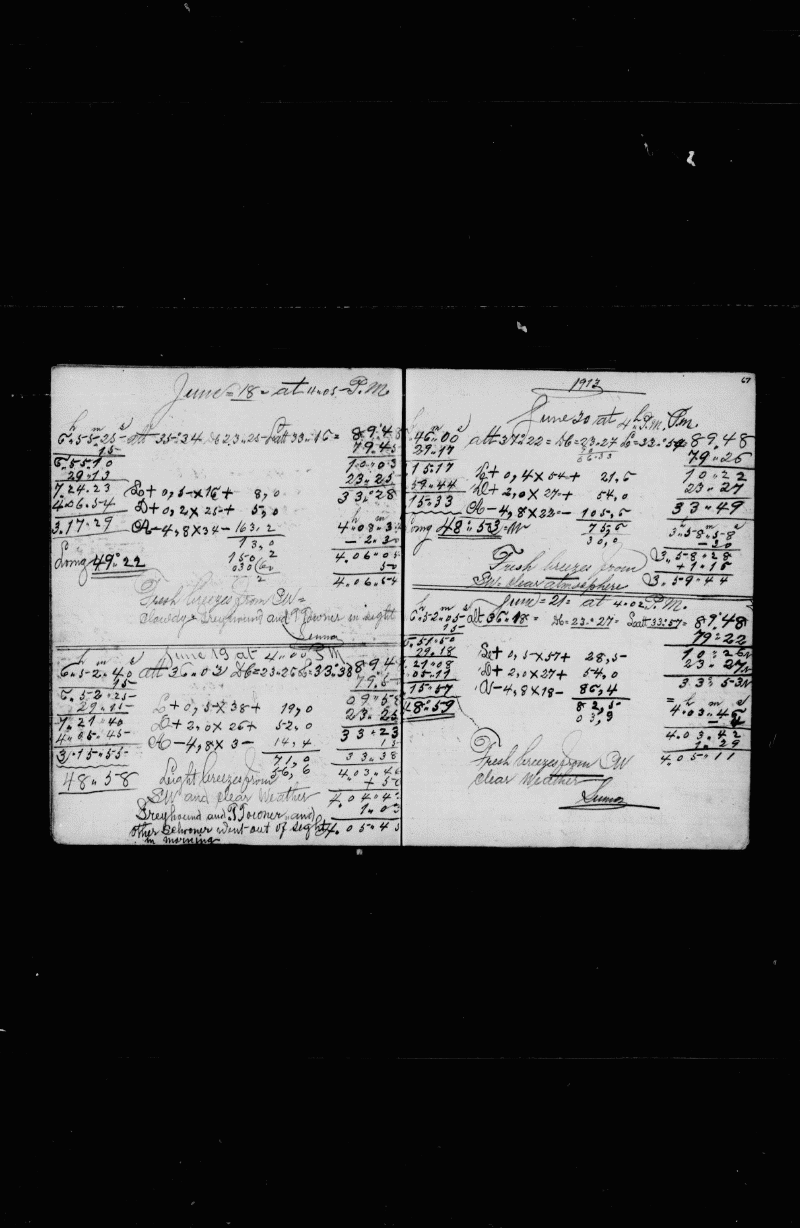 June = 18 = at 4.05 P.M
h m s
6.55.25 att 35:34 D6 23.25 Latt 33.16 = 89.48
15 79.45
6.55.10 10.03
29.13 23.25
7.24.23 L + 0,5 x 16 + 8,0 33:28
4.06.54 D + 0,2 x 25 + 5,0
3.17.29 A - 4,8 x 34 - 163.2
13,0 - 2.30
Long 49:22 150 2 4.06.04
50
4.06.54
Fresh breezes from SW =
Clowdy = Greyhound and P Towner in sight
Lennox
June 19 at 4.00 P M
h m s
6.52.40 att 36.03 D6=23.26 L=33.38 89.4
15 79.5
6.52.25 09.5
29.15 L + 0,5 x 38 + 19,0 23.26
7.21.40 D + 2,0 x 26 + 52.0 33.23
4.05.45 A - 4,8 x 3 - 14,4 15
3.15.55 71,0 33.38
48.58 56,6 4.03.46
Light breezes from
SW and clear Weather
Greyhound and P Towner and 1.03
other Schooner went out of sight 4.05.43
in morning
1913
67
June 20 at 4 h P.M. P.m
46.00 att 37:22 = D6 = 23.27 L = 33:54 89.48
29.17 79.26
15.17 L + 0,4 x 54 + 21,6 10.22
59.44 D + 2,0 x 27 + 54,0 23.27
15.33 A - 4,8 x 22 - 105,6 33.49
Long 48:53 W 75,6 3.58.58
30,0 - 30
Fresh breezes from 3.58.28
SW clear atmosphere + 1.16
3.59.44
June = 21 = at 4.02 P.M.
h m s
6.52.05 alt 36.18 = D6 = 23.27 = Latt 33.57 = 89.48
15 79.22
6.51.50 10.26
29.18 L + 0,5 x 57 + 28,5 23.27
21.08 D + 2,0 x 27 + 54,0 33.53
05.11 A - 4,8 x 18 - 86,4 h m s
15.57 82,5 4.03.46
48.59 03,9 - 4
4.03.42
Fresh breezes from SW 1.29
clear Weather 4.05.11
Lennox